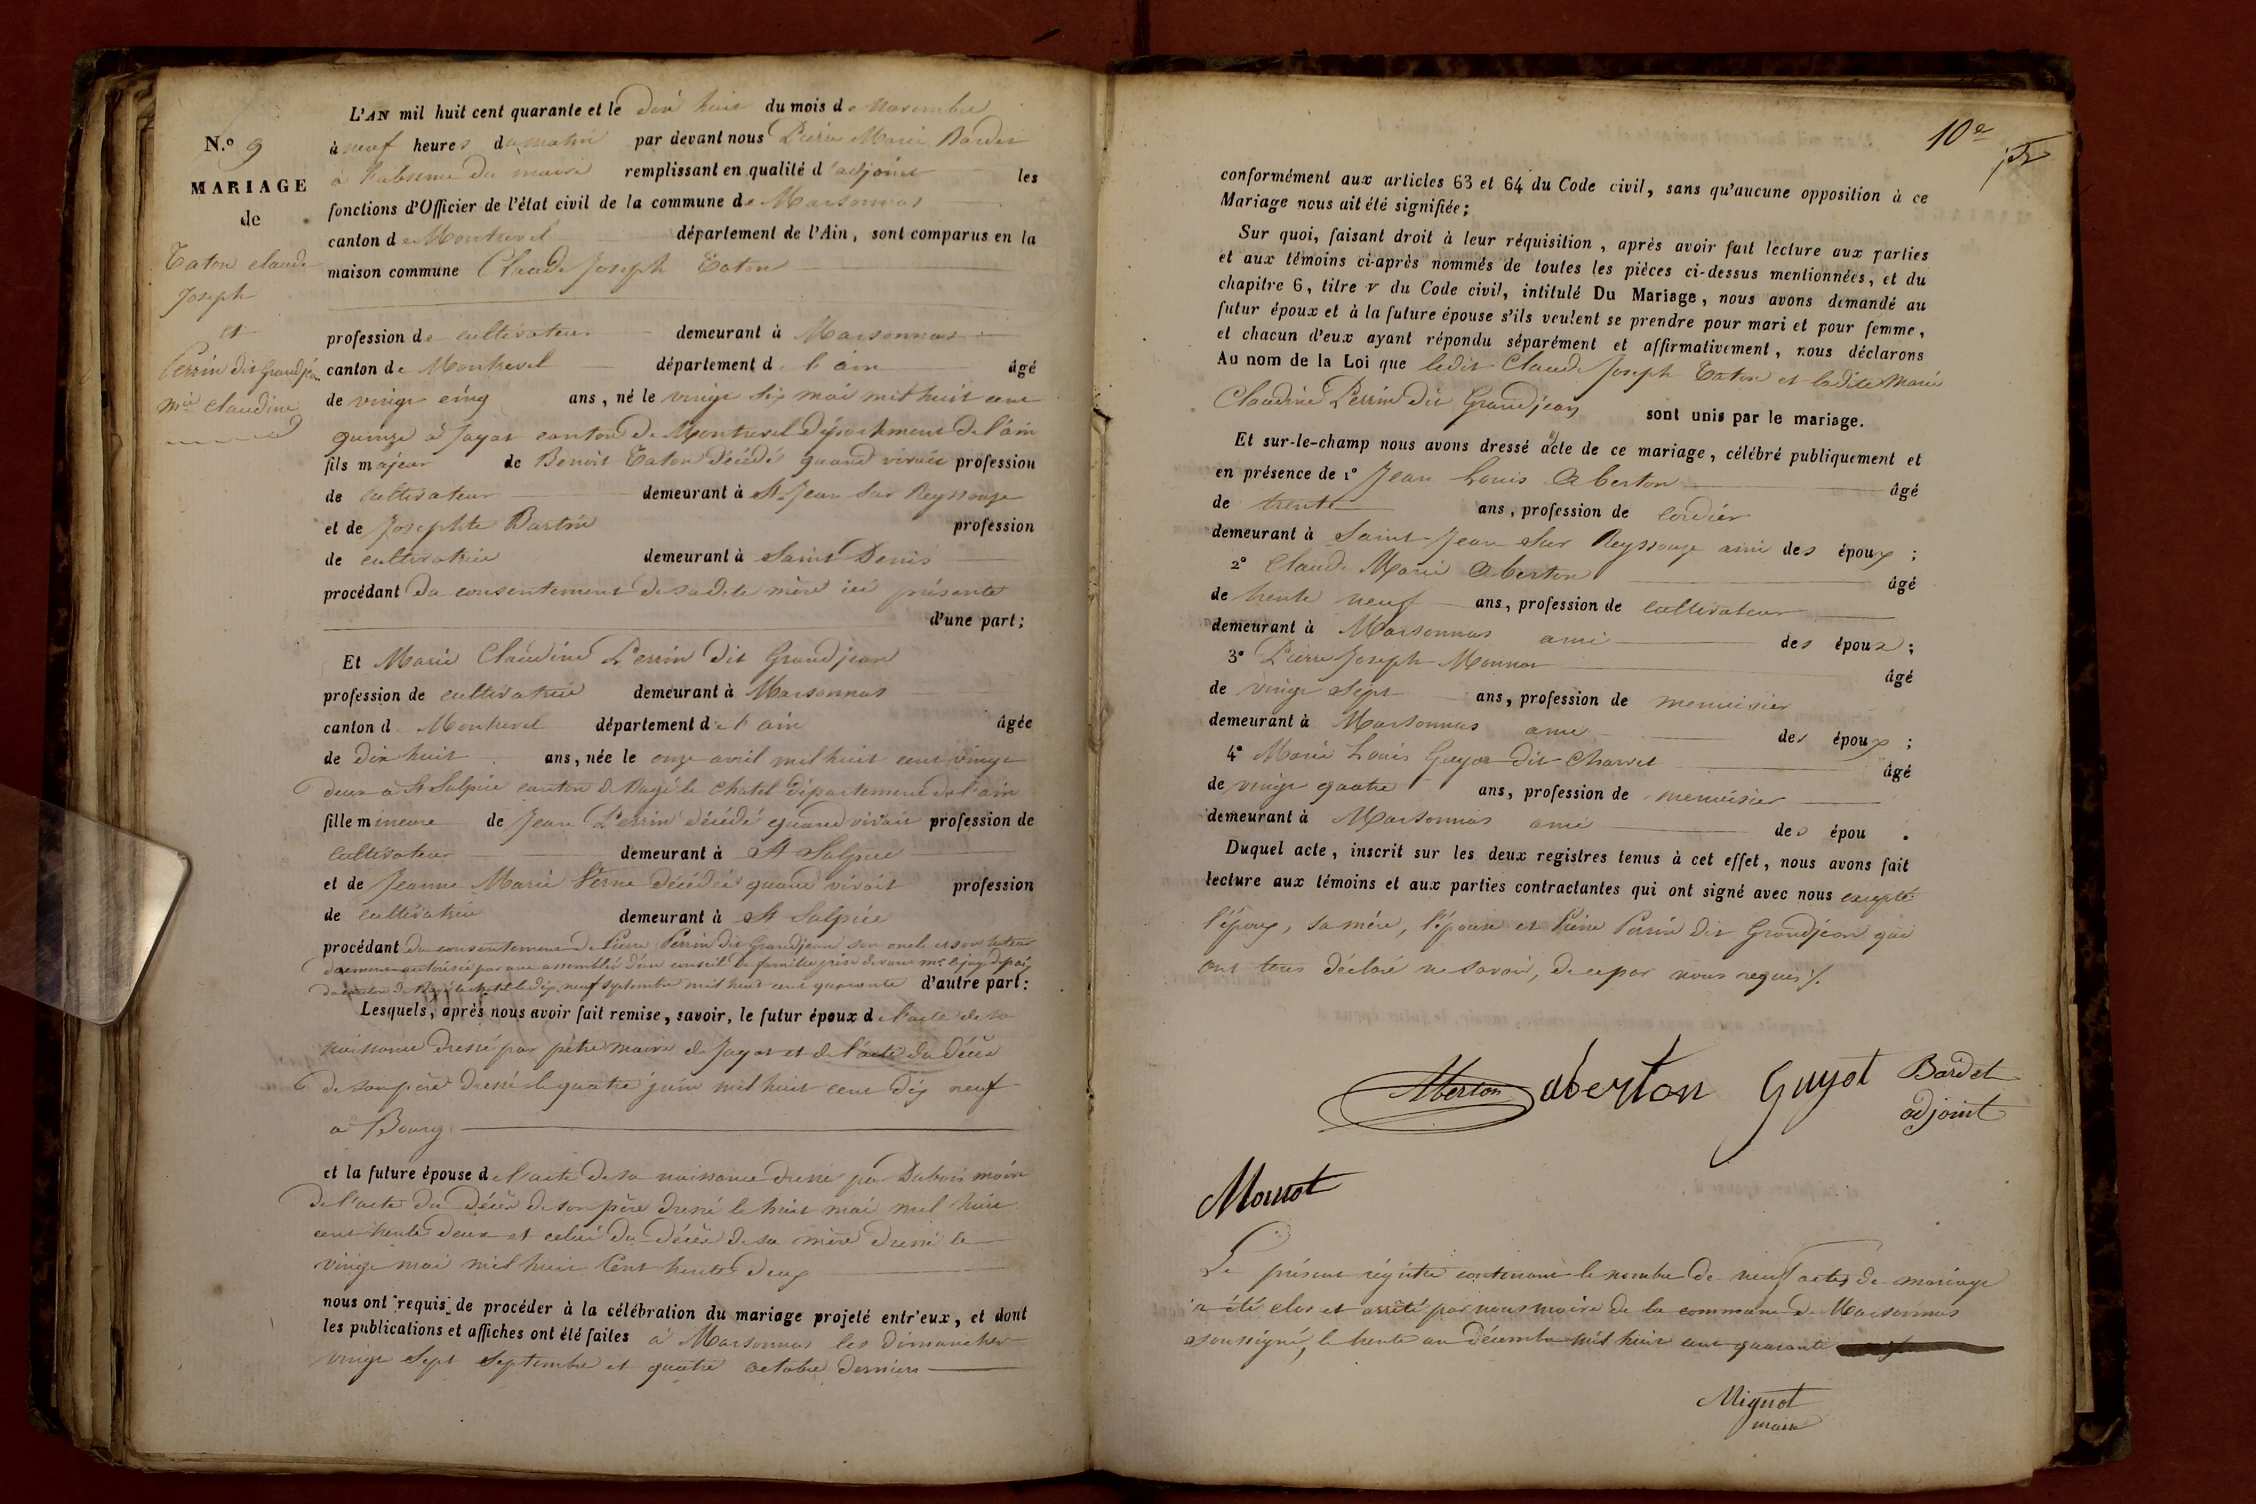 N.º 9
MARIAGE
de
Taton claude
Joseph
et
Perrin dit Grandjean
mie claudine
L'AN mil huit cent quarante et le dix huit du mois de Novembre
à neuf heures du matin par devant nous Pierre Marie Bardet
à l'absence du maire remplissant en qualité d'adjoint les
fonctions d'Officier de l'état civil de la commune de Marsonnas
canton de Montrevel département de l'Ain, sont comparus en la
maison commune Claude Joseph Taton
profession de cultivateur demeurant à Marsonnas
canton de Montrevel département de l'ain âgé
de vingt cinq ans, né le vingt six mai mil huit cent
quinze à Jayat canton de Montrevel département de l'ain
fils majeur de Benoit Taton décédé quand vivait profession
de cultivateur demeurant à St Jean sur Reyssouze
et de Josephte Bartin profession
de cultivatrice demeurant à Saint Denis
procédant du consentement de sadite mère ici présente
d'une part;
Et Marie Claudine Perrin dit Grandjean
profession de cultivatrice demeurant à Marsonnas
canton d Montrevel département de l'ain âgée
de dix huit ans, née le onze avril mil huit cent vingt
deux à St Sulpice canton de Bagé le Chatel département de l'ain
fille mineure de Jean Perrin décédé quand vivait profession de
cultivateur demeurant à St Sulpice
et de Jeanne Marie Verne décédée quand vivait profession
de cultivatrice demeurant à St Sulpice
procédant du consentement de Pierre Perrin dit Grandjean son oncle et son tuteur
duement autorisé par une assemblée d'un conseil de famille prise devant mr le juge de paix
du canton de Bagé le chatel le dix neuf septembre mil huit cent quarante d'autre part:
Lesquels, après nous avoir fait remise, savoir, le futur époux de l'acte de sa
naissance dressé par pètre maire de Jayat et de l'acte du décès
de son père dressé le quatre juin mil huit cent dix neuf
à Bourg
et la future épouse de l'acte de sa naissance dressé par Dubois maire
de l'acte du décès de son père dressé le huit mai mil huit
cent trente deux et celui du décès de sa mère dressé le
vingt mai mil huit cent trente deux
nous ont requis de procéder à la célébration du mariage projeté entr'eux, et dont
les publications et affiches ont été faites à Marsonnas les dimanches
vingt sept septembre et quatre octobre derniers
10e
conformément aux articles 63 et 64 du Code civil, sans qu'aucune opposition à ce
Mariage nous ait été signifiée;
Sur quoi, faisant droit à leur réquisition, après avoir fait lecture aux parties
et aux témoins ci-après nommés de toutes les pièces ci-dessus mentionnées, et du
chapitre 6, titre v du Code civil, intitulé Du Mariage, nous avons demandé au
futur époux et à la future épouse s'ils veulent se prendre pour mari et pour femme,
et chacun d'eux ayant répondu séparément et affirmativement, nous déclarons
Au nom de la Loi que ledit Claude Joseph Taton et ladite Marie
Claudine Perrin dit Grandjean sont unis par le mariage.
Et sur-le-champ nous avons dressé acte de ce mariage, célébré publiquement et
en présence de 1º Jean Louis Aberton âgé
de trente ans, profession de cordier
demeurant à Saint Jean sur Reyssouze ami des époux;
2º Claude Marie Aberton âgé
de trente neuf ans, profession de cultivateur
demeurant à Marsonnas ami des époux;
3º Pierre Joseph Monnot âgé
de vingt sept ans, profession de menuisier
demeurant à Marsonnas ami des époux;
4º Marie Louis Guyot dit Charvet âgé
de vingt quatre ans, profession de menuisier
demeurant à Marsonnas ami des épou.
Duquel acte, inscrit sur les deux registres tenus à cet effet, nous avons fait
lecture aux témoins et aux parties contractantes qui ont signé avec nous excepté
l'époux, sa mère, l'épouse et Pierre Perrin dit Grandjean qui
ont tous déclaré ne savoir, de ce par nous requis /.
Aberton aberton Guyot Bardet
adjoint
Monnot
Le présent régistre contenant le nombre de neuf actes de mariage
a été clos et arrêté par nous maire de la commune de Marsonnas
soussigné, le trente un décembre mil huit cent quarante
Mignot
maire